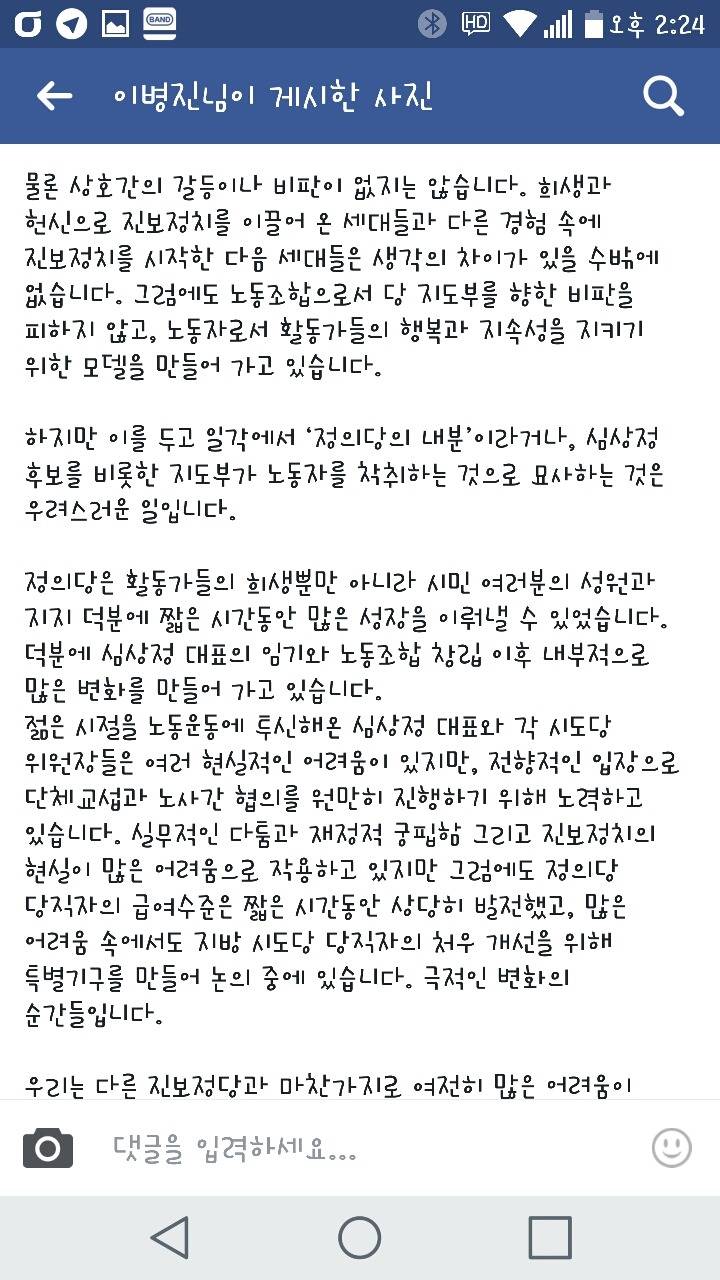 BAND
HD
오후 2:24
이병진님이 게시한 사진
물론 상호간의 갈등이나 비판이 없지는 않습니다. 희생과
헌신으로 진보정치를 이끌어 온 세대들과 다른 경험 속에
진보정치를 시작한 다음 세대들은 생각의 차이가 있을 수밖에
없습니다. 그럼에도 노동조합으로서 당 지도부를 향한 비판을
피하지 않고, 노동자로서 활동가들의 행복과 지속성을 지키기
위한 모델을 만들어 가고 있습니다.
하지만 이를 두고 일각에서 ‘정의당의 내분’이라거나, 심상정
후보를 비롯한 지도부가 노동자를 착취하는 것으로 묘사하는 것은
우려스러운 일입니다.
정의당은 활동가들의 희생뿐만 아니라 시민 여러분의 성원과
지지 덕분에 짧은 시간동안 많은 성장을 이뤄낼 수 있었습니다.
덕분에 심상정 대표의 임기와 노동조합 창립 이후 내부적으로
많은 변화를 만들어 가고 있습니다.
젊은 시절을 노동운동에 투신해온 심상정 대표와 각 시도당
위원장들은 여러 현실적인 어려움이 있지만, 전향적인 입장으로
단체교섭과 노사간 협의를 원만히 진행하기 위해 노력하고
있습니다. 실무적인 다툼과 재정적 궁핍함 그리고 진보정치의
현실이 많은 어려움으로 작용하고 있지만 그럼에도 정의당
당직자의 급여수준은 짧은 시간동안 상당히 발전했고, 많은
어려움 속에서도 지방 시도당 당직자의 처우 개선을 위해
특별기구를 만들어 논의 중에 있습니다. 극적인 변화의
순간들입니다.
우리는 다른 진보정당과 마찬가지로 여전히 많은 어려움이
댓글을 입력하세요...